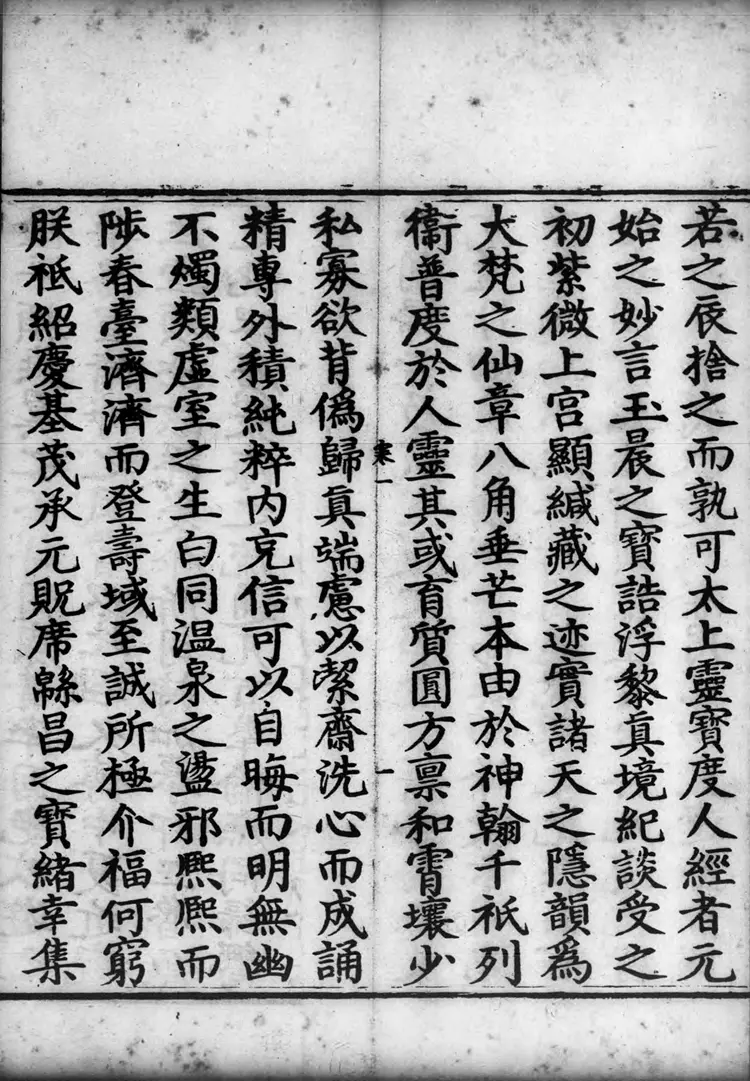 若之辰捨之而孰可太上靈寶度人經者元
始之妙言玉晨之寶誥浮黎真境紀談受之
初紫微上宮顯緘藏之迹實諸天之隱韻爲
大梵之仙章八角垂芒本由於神翰千祇列
衞普度於人靈其或育質圓方稟和霄壤少
寒一
一
私寡欲背僞歸真端慮以絜齋洗心而成誦
精專外積純粹内充信可以自晦而明無幽
不燭類虛室之生白同温泉之盪邪熈熈而
陟春臺濟濟而登壽域至誠所極介福何窮
朕祗紹慶基茂承元貺席緜昌之寶緒幸集